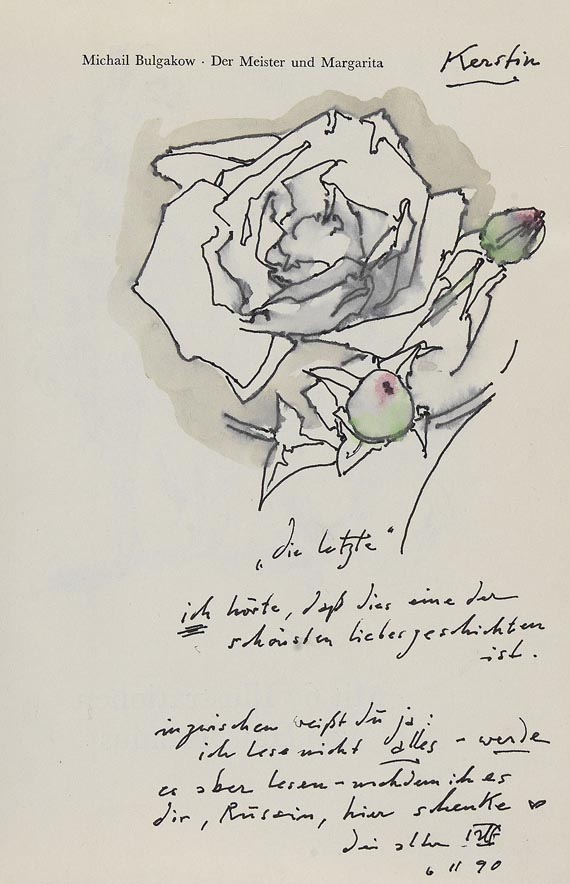 Michail Bulgakow · Der Meister und Margarita
Kerstin
„die letzte"
ich hörte, daß dies eine der
schönsten liebesgeschichten
ist.
inzwischen weißt du ja:
ich lese nicht alles – werde
es aber lesen – nachdem ich es
dir, Russin, hier schenke
dein alter
6 11 90